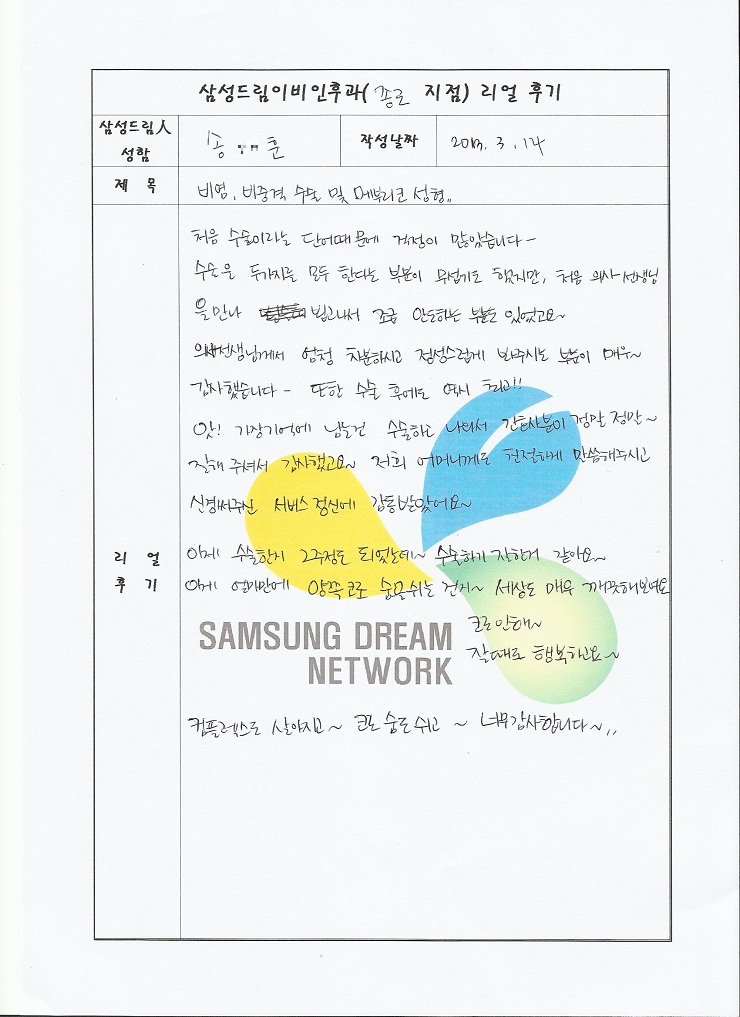 삼성드림이비인후과(종로 지점) 리얼 후기
삼성드림人 성함
송 훈
작성날짜
2013. 3. 14
제 목
비염, 비중격 수술 및 메부리코 성형..
리 얼 후 기
처음 수술이라는 단어때문에 걱정이 많았습니다-
수술을 두가지를 모두 한다는 부분이 무섭기도 했지만, 처음 의사선생님
을 만나 뵙고나서 조금 안도하는 부분도 있었고요~
의사선생님께서 엄청 차분하시고 정성스럽게 봐주시는 부분이 매우~
감사했습니다- 또한 수술 후에도 역시 최고!!
앗! 가장기억에 남는건 수술하고 나와서 간호사분이 정말 정말~
잘해 주셔서 감사했고요~ 저희 어머니께도 친절하게 말씀해주시고
신경써주신 서비스 정신에 감동받았어요~
이제 수술한지 2주정도 되었는데~ 수술하기 잘한거 같아요~
이게 얼마만에 양쪽 코로 숨을쉬는 건지~ 세상도 매우 깨끗해보여요
코로인해~
잘때도 행복하고요~
SAMSUNG DREAM
NETWORK
컴플렉스도 사라지고~ 코로 숨도쉬고 ~ 너무감사합니다~..